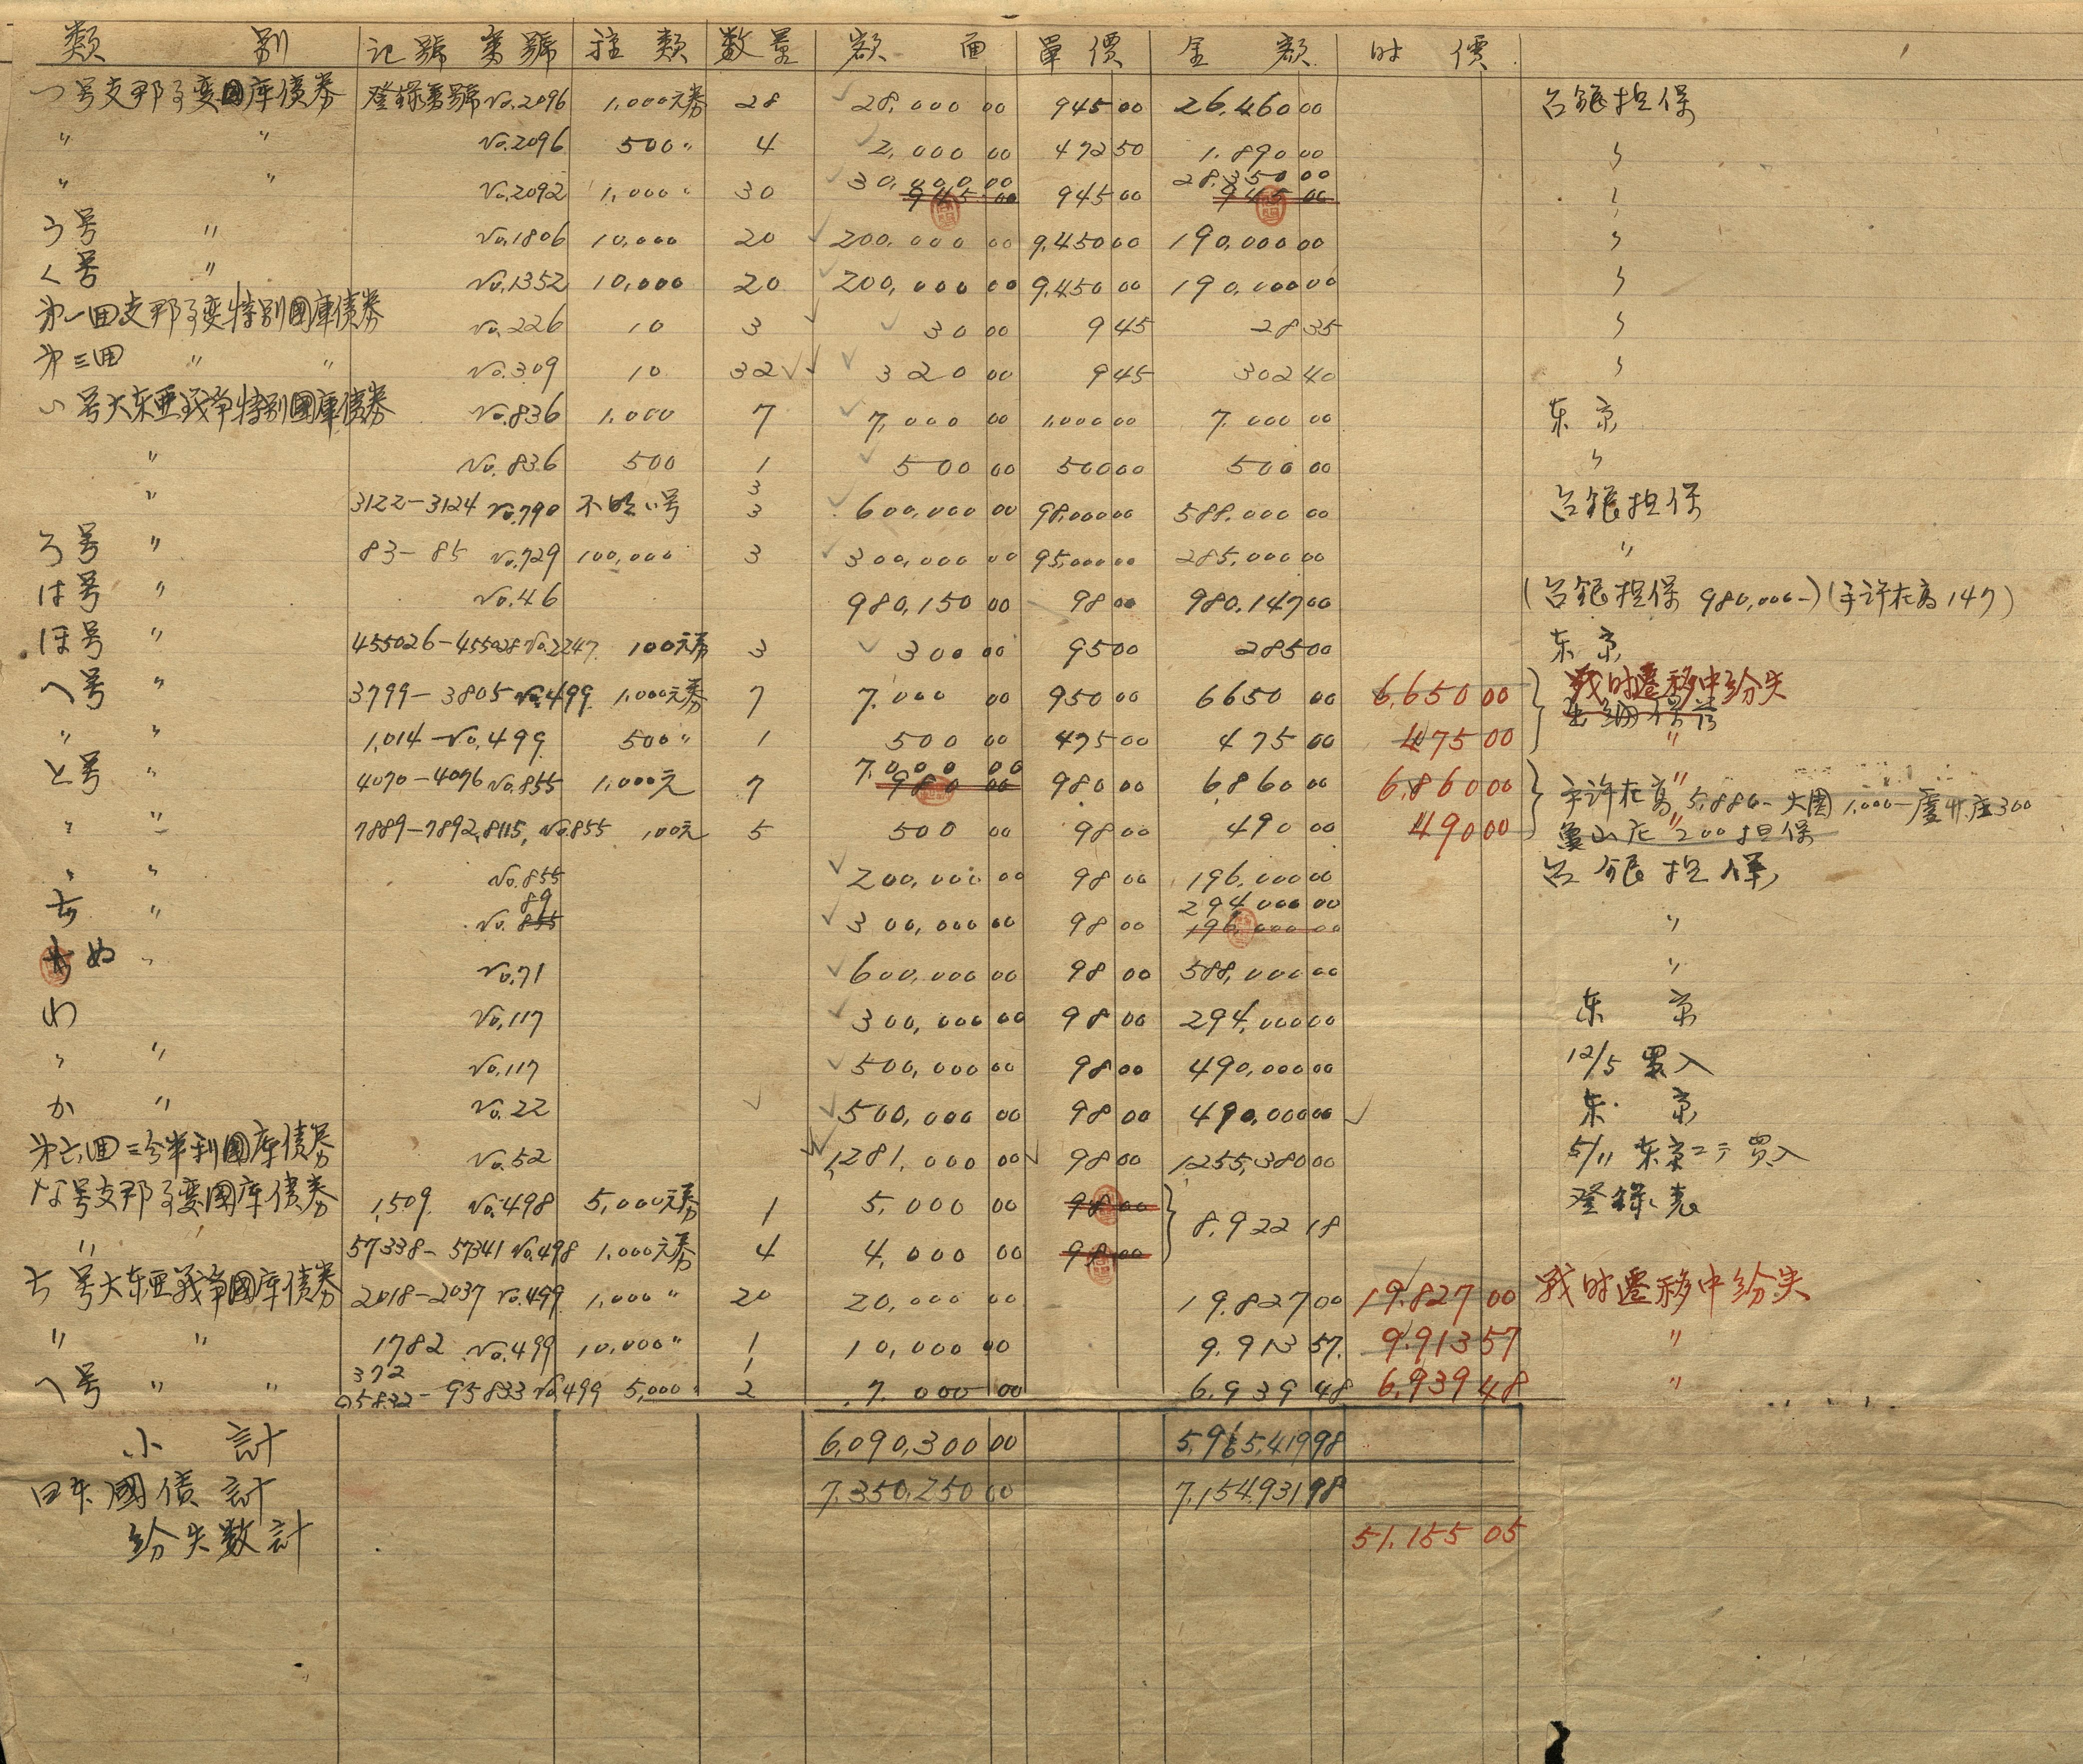 類別 記號番號 種類 数量 額面 單價 金額 时價
つ号支那事変国庫債券 登録番號No.2096 1,000元券 28 28,000 00 945 00 26,460 00 台銀担保
〃 〃 No.2096 500〃 4 2,000 00 472 50 1,890 00 〃
〃 〃 No.2092 1,000〃 30 30,000 00 945 00 945 00 28,350 00 945 00 〃
う号 〃 No.1806 10,000 20 200,000 00 9,450 00 190,000 00 〃
く号 〃 No.1352 10,000 20 200,000 00 9,450 00 190,000 00 〃
第一回支那事変特別国庫債券 No.226 10 3 30 00 9 45 28 35 〃
第三回 〃 〃 No.309 10 32 320 00 9 45 302 40 〃
い号大东亜戦争特別国庫債券 No.836 1,000 7 7,000 00 1,000 00 7,000 00 东京
〃 No.836 500 1 500 00 500 00 500 00 〃
〃 3122-3124 No.790 3 3 600,000 00 98,000 00 588,000 00 台銀担保
ろ号 〃 83-85 No.729 100,000 3 300,000 00 95,000 00 285,000 00 〃
は号 〃 No.46 980,150 00 98 00 980,147 00 (台銀担保 980,000-)(手許在高147)
ほ号 〃 455026-455028 No.2247 100元券 3 300 00 95 00 285 00 东京
へ号 〃 3799-3805 No.499 1,000元券 7 7,000 00 950 00 6650 00 6,650 00 戦时遷移中紛失
〃 〃 1,014-No.499 500〃 1 500 00 475 00 475 00 475 00 〃
と号 〃 4070-4076 No.855 1,000元 7 7,000 00 980 00 980 00 6,860 00 6,860 00 〃 手許在高 5,880-大園1,000-蘆竹庄300
〃 〃 7889-7892,8115, No.855 100元 5 500 00 98 00 490 00 490 00 〃 亀山庄200担保
〃 〃 No.855 200,000 00 98 00 196,000 00 台銀担保
ち 〃 89 No.855 300,000 00 98 00 294,000 00 196,000 00 〃
ぬ 〃 No.71 600,000 00 98 00 588,000 00 〃
わ No.117 300,000 00 98 00 294,000 00 东京
〃 〃 No.117 500,000 00 98 00 490,000 00 12/5 買入
か 〃 No.22 500,000 00 98 00 490,000 00 东京
第六回三分半利国庫債券 No.52 1,281,000 00 98 00 1255,380 00 5/11 东京ニテ買入
な号支那事変国庫債券 1,509 No.498 5,000元券 1 5,000 00 98 00 8,922 18 登録
〃 57338-57341 No.498 1,000元券 4 4,000 00 98 00
と号大东亜戦争国庫債券 2018-2037 No.499 1,000〃 20 20,000 00 19,827 00 19,827 00 戦时遷移中紛失
〃 〃 1782 No.499 10,000〃 1 10,000 00 9,913 57 9,913 57 〃
へ号 〃 〃 372 95832-95833 No.499 5,000〃 1 2 7,000 00 6,939 48 6,939 48 〃
小計 6,090,300 00 5,965,419 98
日本國債計 7,350,250 00 7,154,931 98
紛失数計 51,155 05